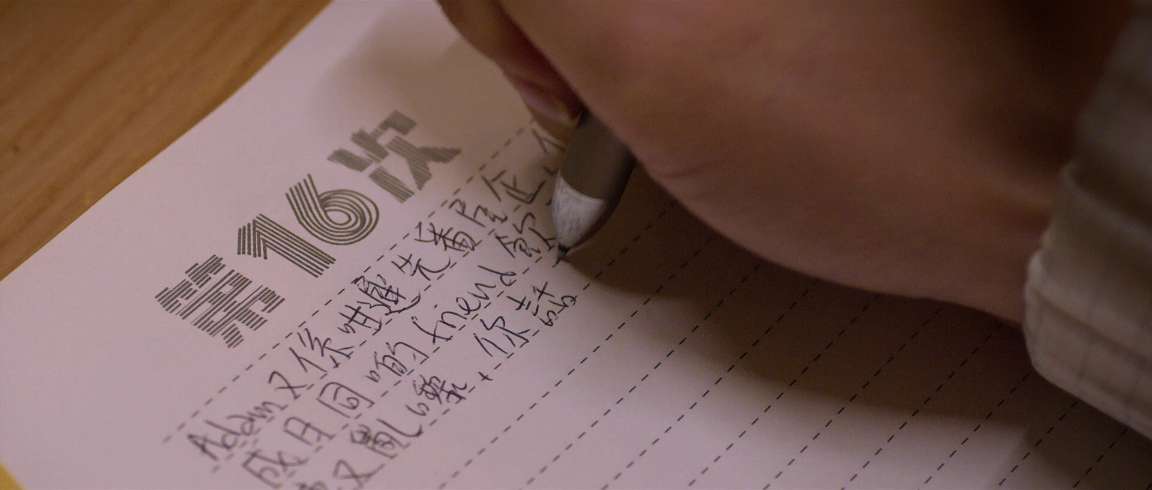 第16次
Adam又係咁遲先番屋企
成日同啲friend飲
又亂咁嚟，你話